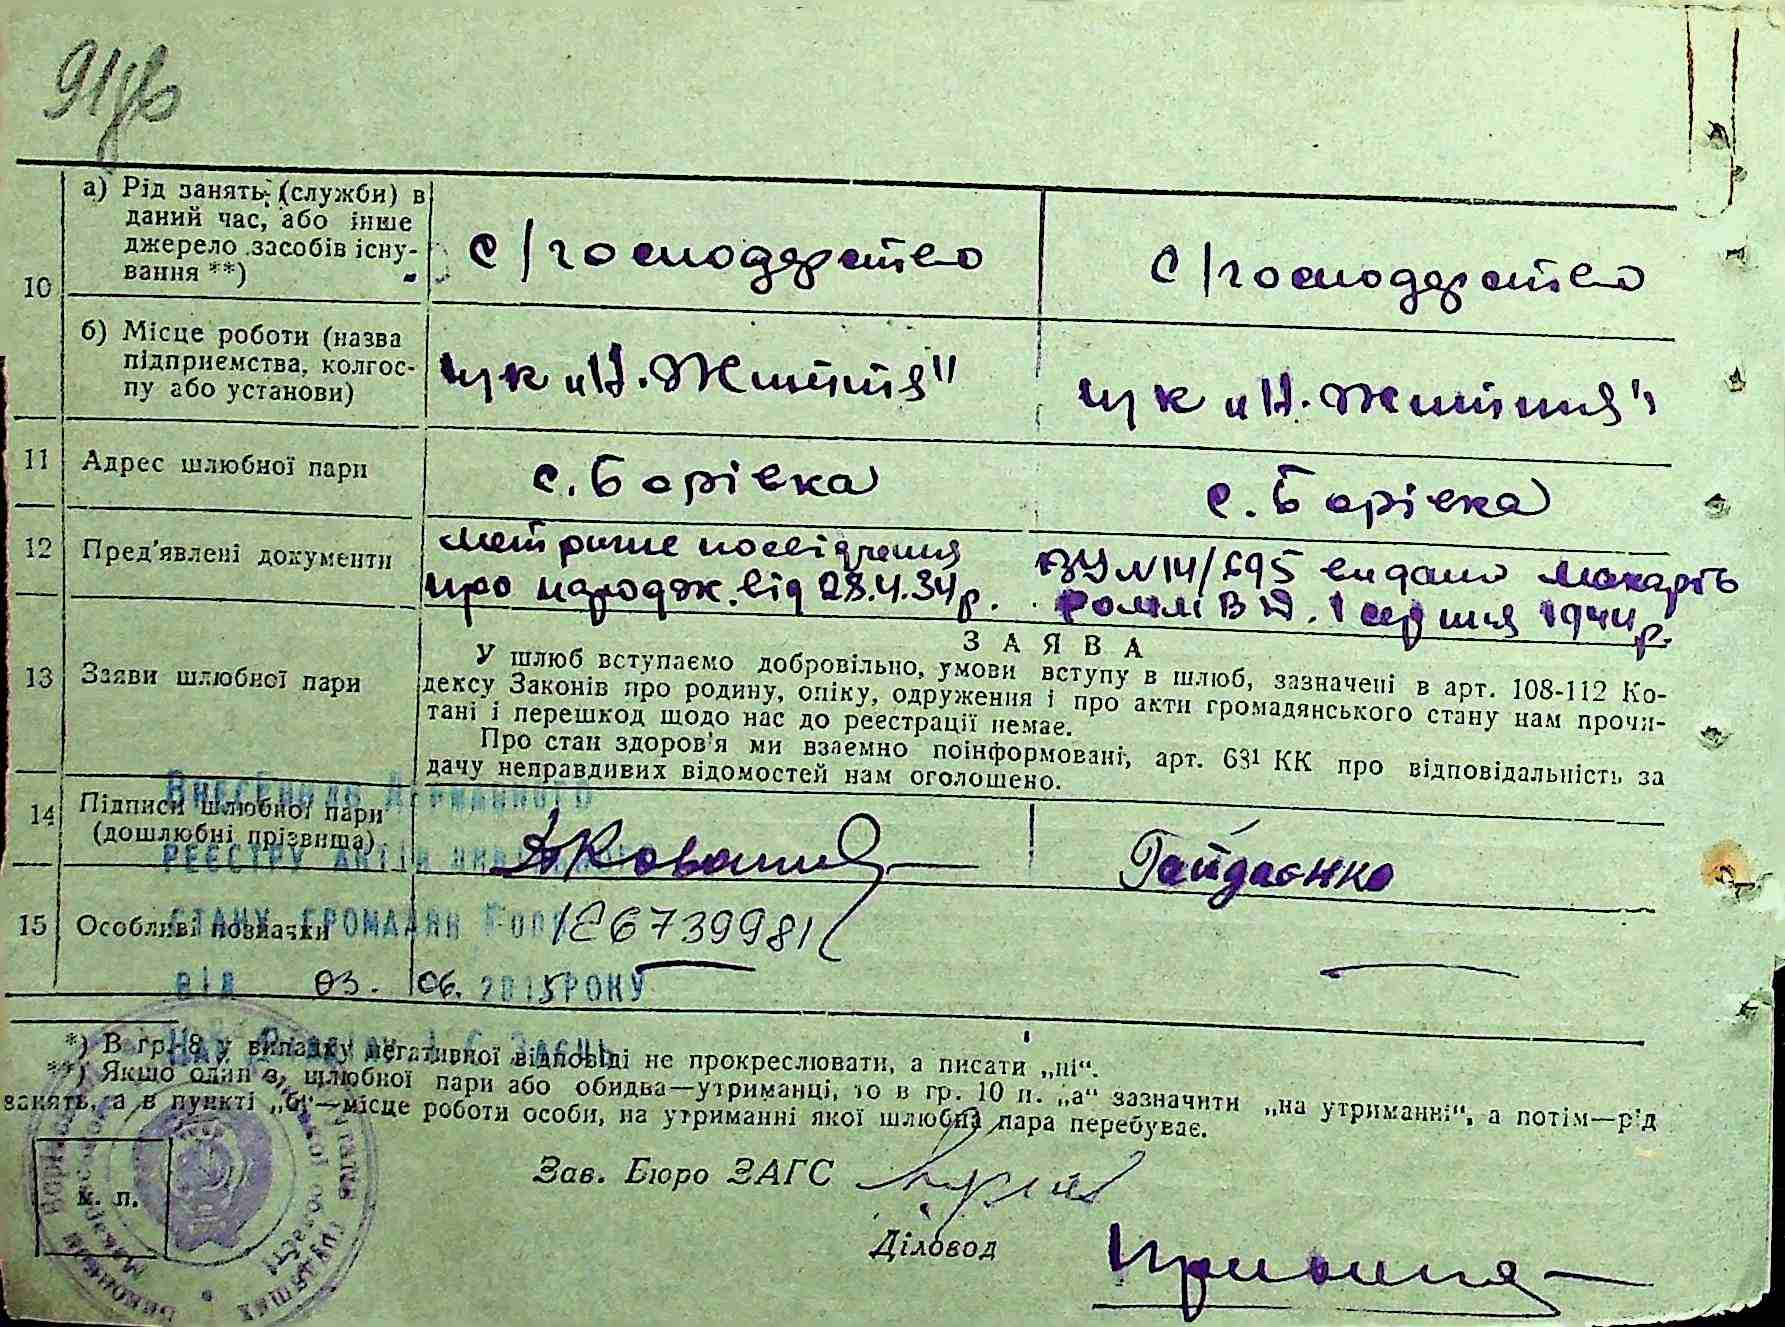 91
10
а) Рід занять (службн) в даний час, або інше джерело засобів існування **)
с/господарство
с/господарство
б) Місце роботи (назва підприємства, колгоспу або установи)
к „Н. Життя"
к „Н. Життя"
11 Адрес шлюбної пари
с. Борівка
с. Борівка
12 Пред'явлені документи
метричне посвідчення
про народж. від 28.4.34р.
видано Макарів
1 серпня 1944р.
13 Заяви шлюбної пари
ЗАЯВА
У шлюб вступаємо добровільно, умови вступу в шлюб, зазначені в арт. 108-112 Ко-
дексу Законів про родину, опіку, одруження і про акти громадянського стану нам прочи-
тані і перешкод щодо нас до реєстрації немає.
Про стан здоров'я ми взаємно поінформовані, арт. 63¹ КК про відповідальність за
дачу неправдивих відомостей нам оголошено.
14 Підписи шлюбної пари
(дошлюбні прізвища)
Гайдаєнко
15 Особливі позначки
Внесений до Державного
реєстру актів цивільного
стану громадян
від 03. 06. 2015 РОКУ
*) В гр. 8 у випадку негативної відповіді не прокреслювати, а писати „ні“.
**) Якщо один з шлюбної пари або обидва—утриманці, то в гр. 10 п. „а“ зазначити „на утриманні“, а потім—рід
занять, а в пункті „б“—місце роботи особи, на утриманні якої шлюбна пара перебуває.
м. п.
Зав. Бюро ЗАГС
Діловод